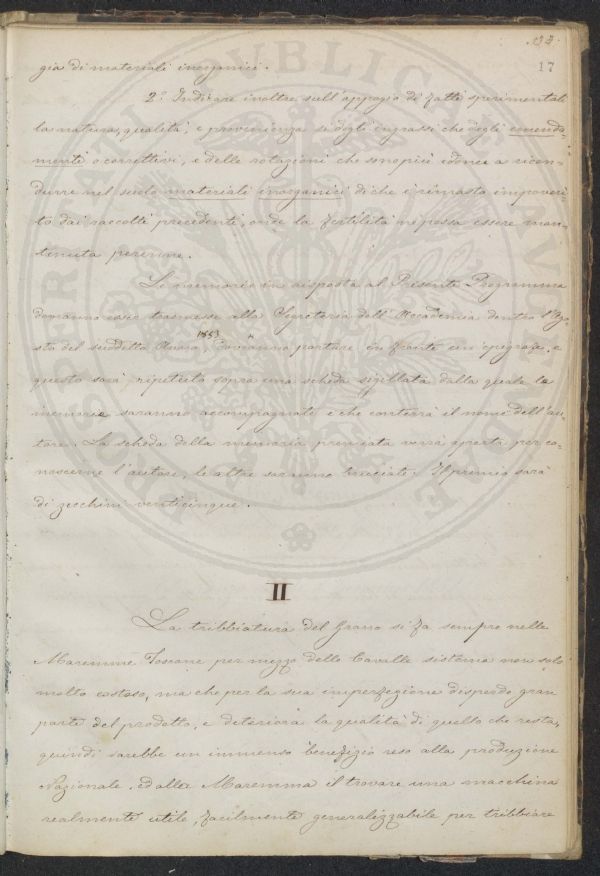 133
17
gia di materiali inorganici.
2.° Indicare inoltre sull'appoggio di fatti sperimentali
la natura, qualità, e provenienza sì degli ingrassi che degli emenda-
menti o correttivi, e delle rotazioni che son più idonee a ricon-
durre nel suolo materiali inorganici di che è rimasto impoveri-
to dai raccolti precedenti, onde la fertilità ne possa essere man-
tenuta perenne.
Le memorie in risposta al Presente Programma
dovranno esser trasmesse alla Segreteria dell'Accademia dentro l'Ago-
sto del suddetto Anno 1853, dovranno portare in fronte un'epigrafe, e
questo sarà ripetuto sopra una scheda sigillata dalla quale le
memorie saranno accompagnate e che conterrà il nome dell'au-
tore. La scheda della memoria premiata verrà aperta per co-
noscerne l'autore, le altre saranno bruciate. Il premio sarà
di zecchini venticinque.
II
La tribbiatura del Grano si fa sempre nelle
Maremme Toscane per mezzo delle Cavalle sistema non solo
molto costoso, ma che per la sua imperfezione disperde gran
parte del prodotto, e deteriora la qualità di quello che resta,
quindi sarebbe un immenso benefizio reso alla produzione
Nazionale, ed alle Maremma il trovare una macchina
realmente utile, facilmente generalizzabile per tribbiare
PROSPERITATI PUBLICAE AUGENDAE